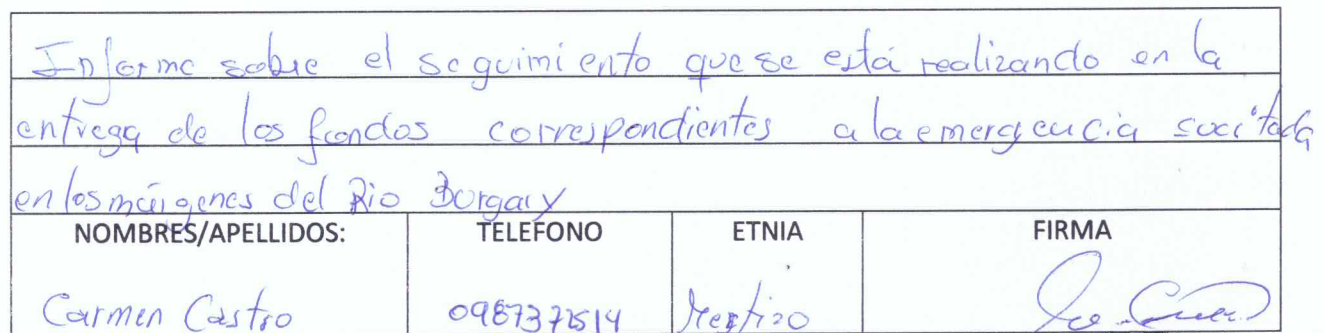 Informe sobre el seguimiento que se está realizando en la
entrega de los fondos correspondientes a la emergencia sucitada
en los márgenes del Rio Burgay
NOMBRES/APELLIDOS: TELEFONO ETNIA FIRMA
Carmen Castro Mestizo